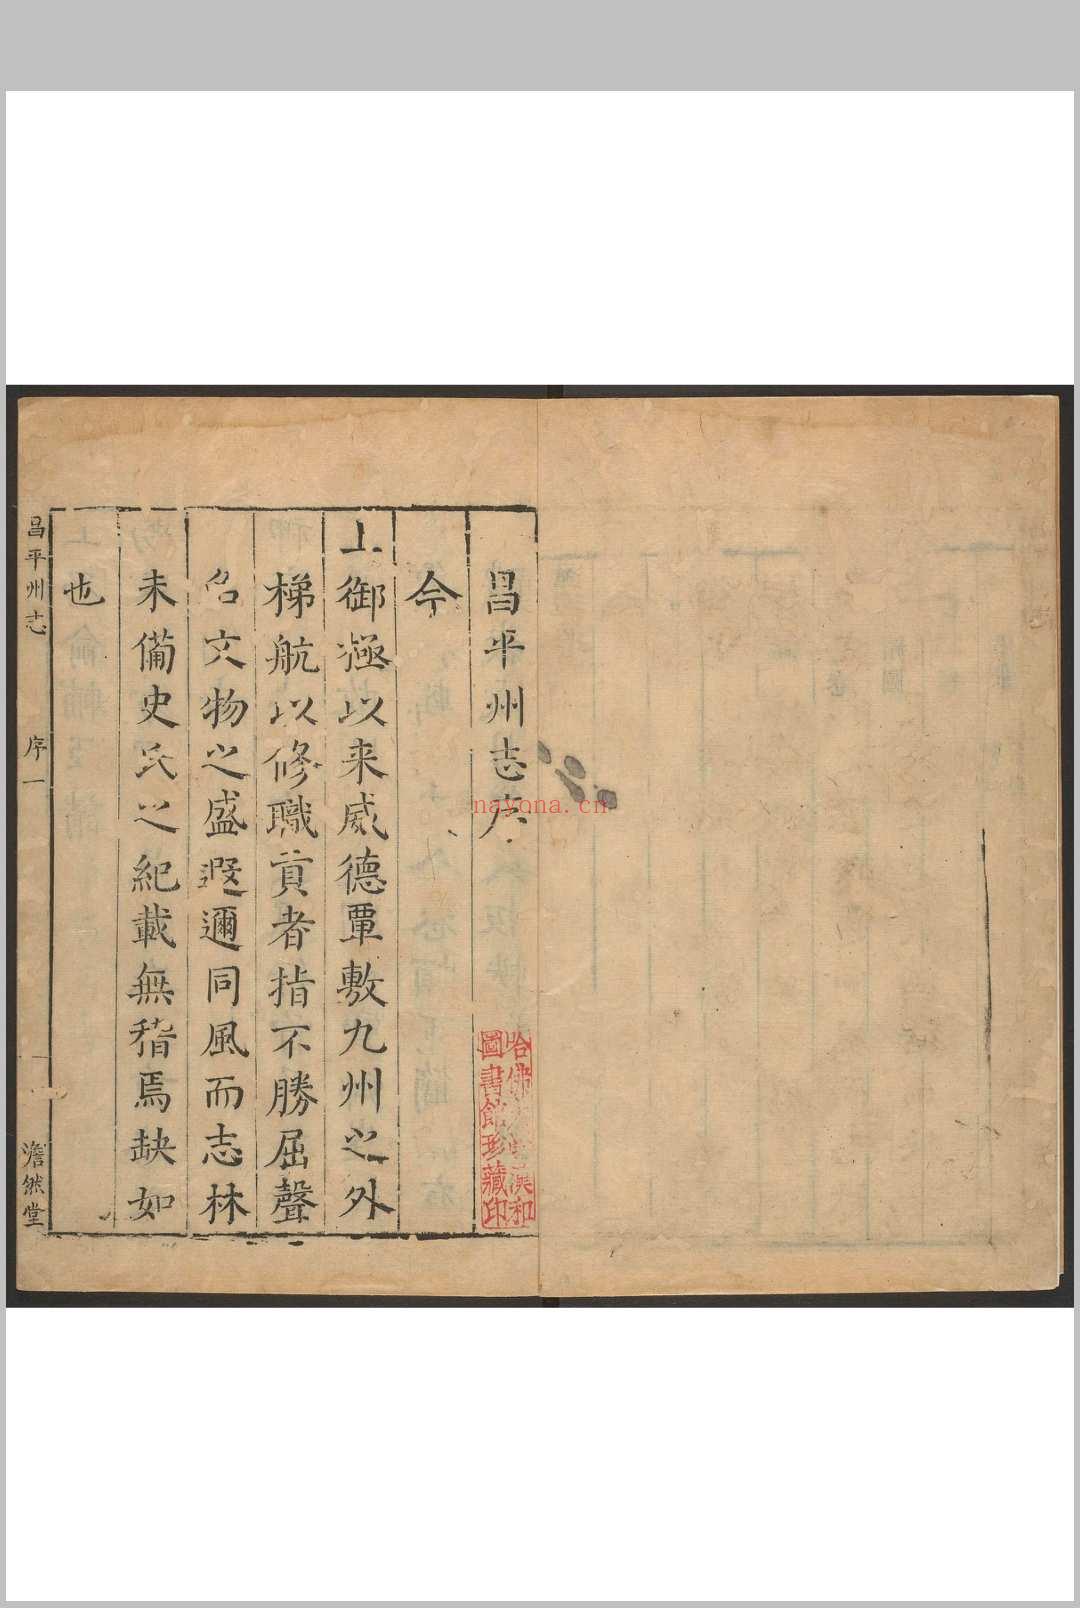 昌平州志序
今
上御極以来威德覃敷九州之外
梯航以修職貢者指不勝屈聲
名文物之盛遐邇同風而志林
未備史氏之紀載無稽焉缺如
也
昌平州志 序一 澹然堂
哈佛大學漢和
圖書館珍藏印
nayona.cn